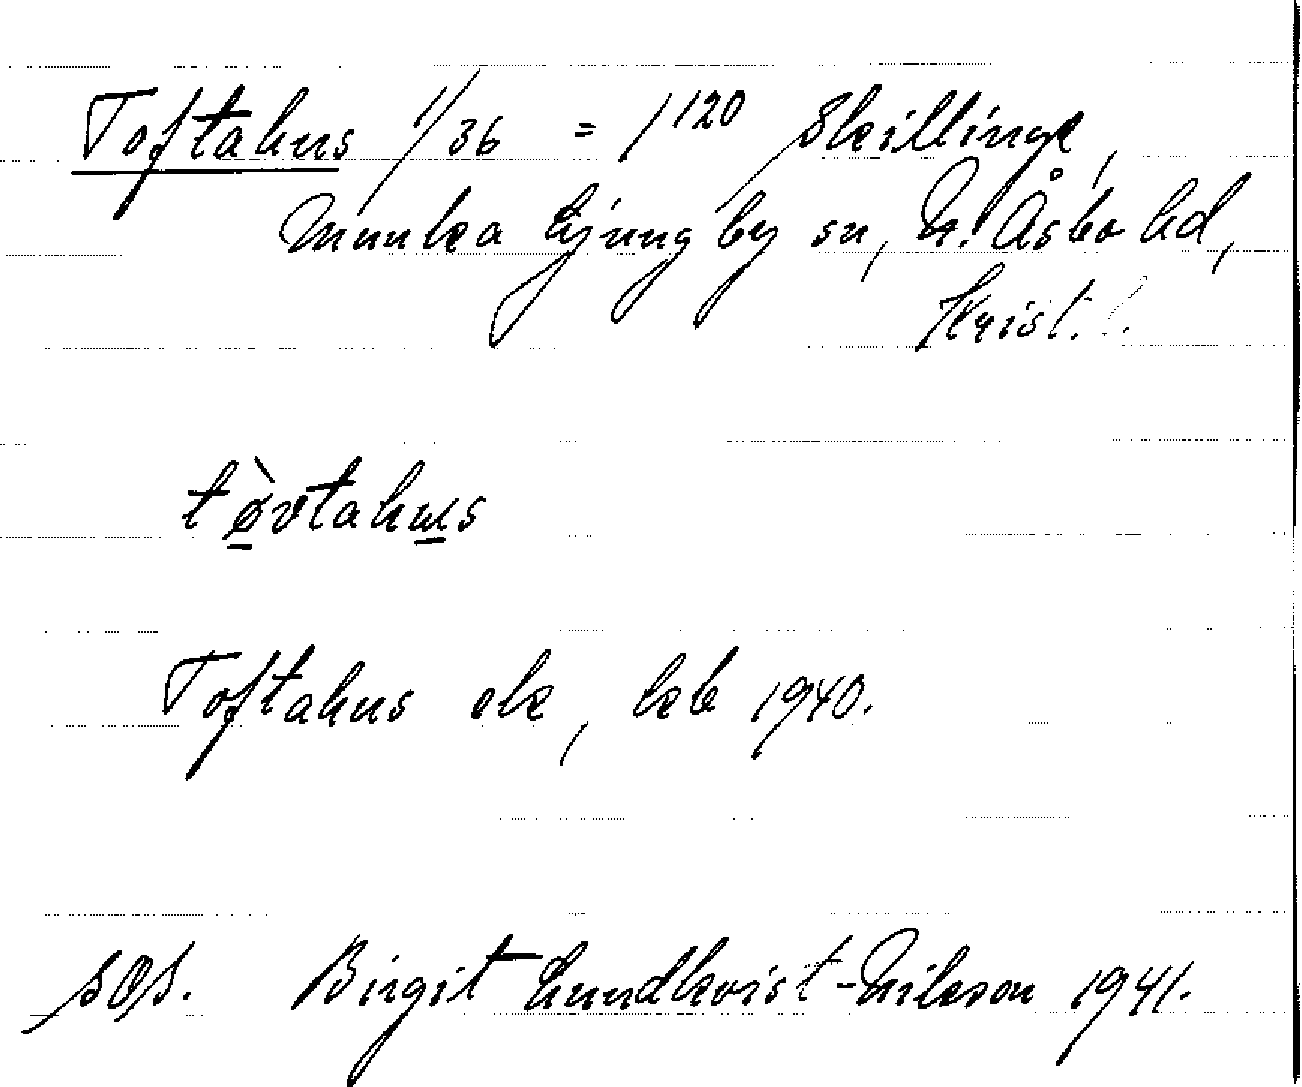 Toftahus 1/36 = 1¹²⁰ Skillinge,
Munka Ljungby sn, N. Åsbo hd,
Krist. l.
tø̀vtahus
Toftahus ek, kb 1940.
SOS. Birgit Lundkvist-Nilsson 1941.